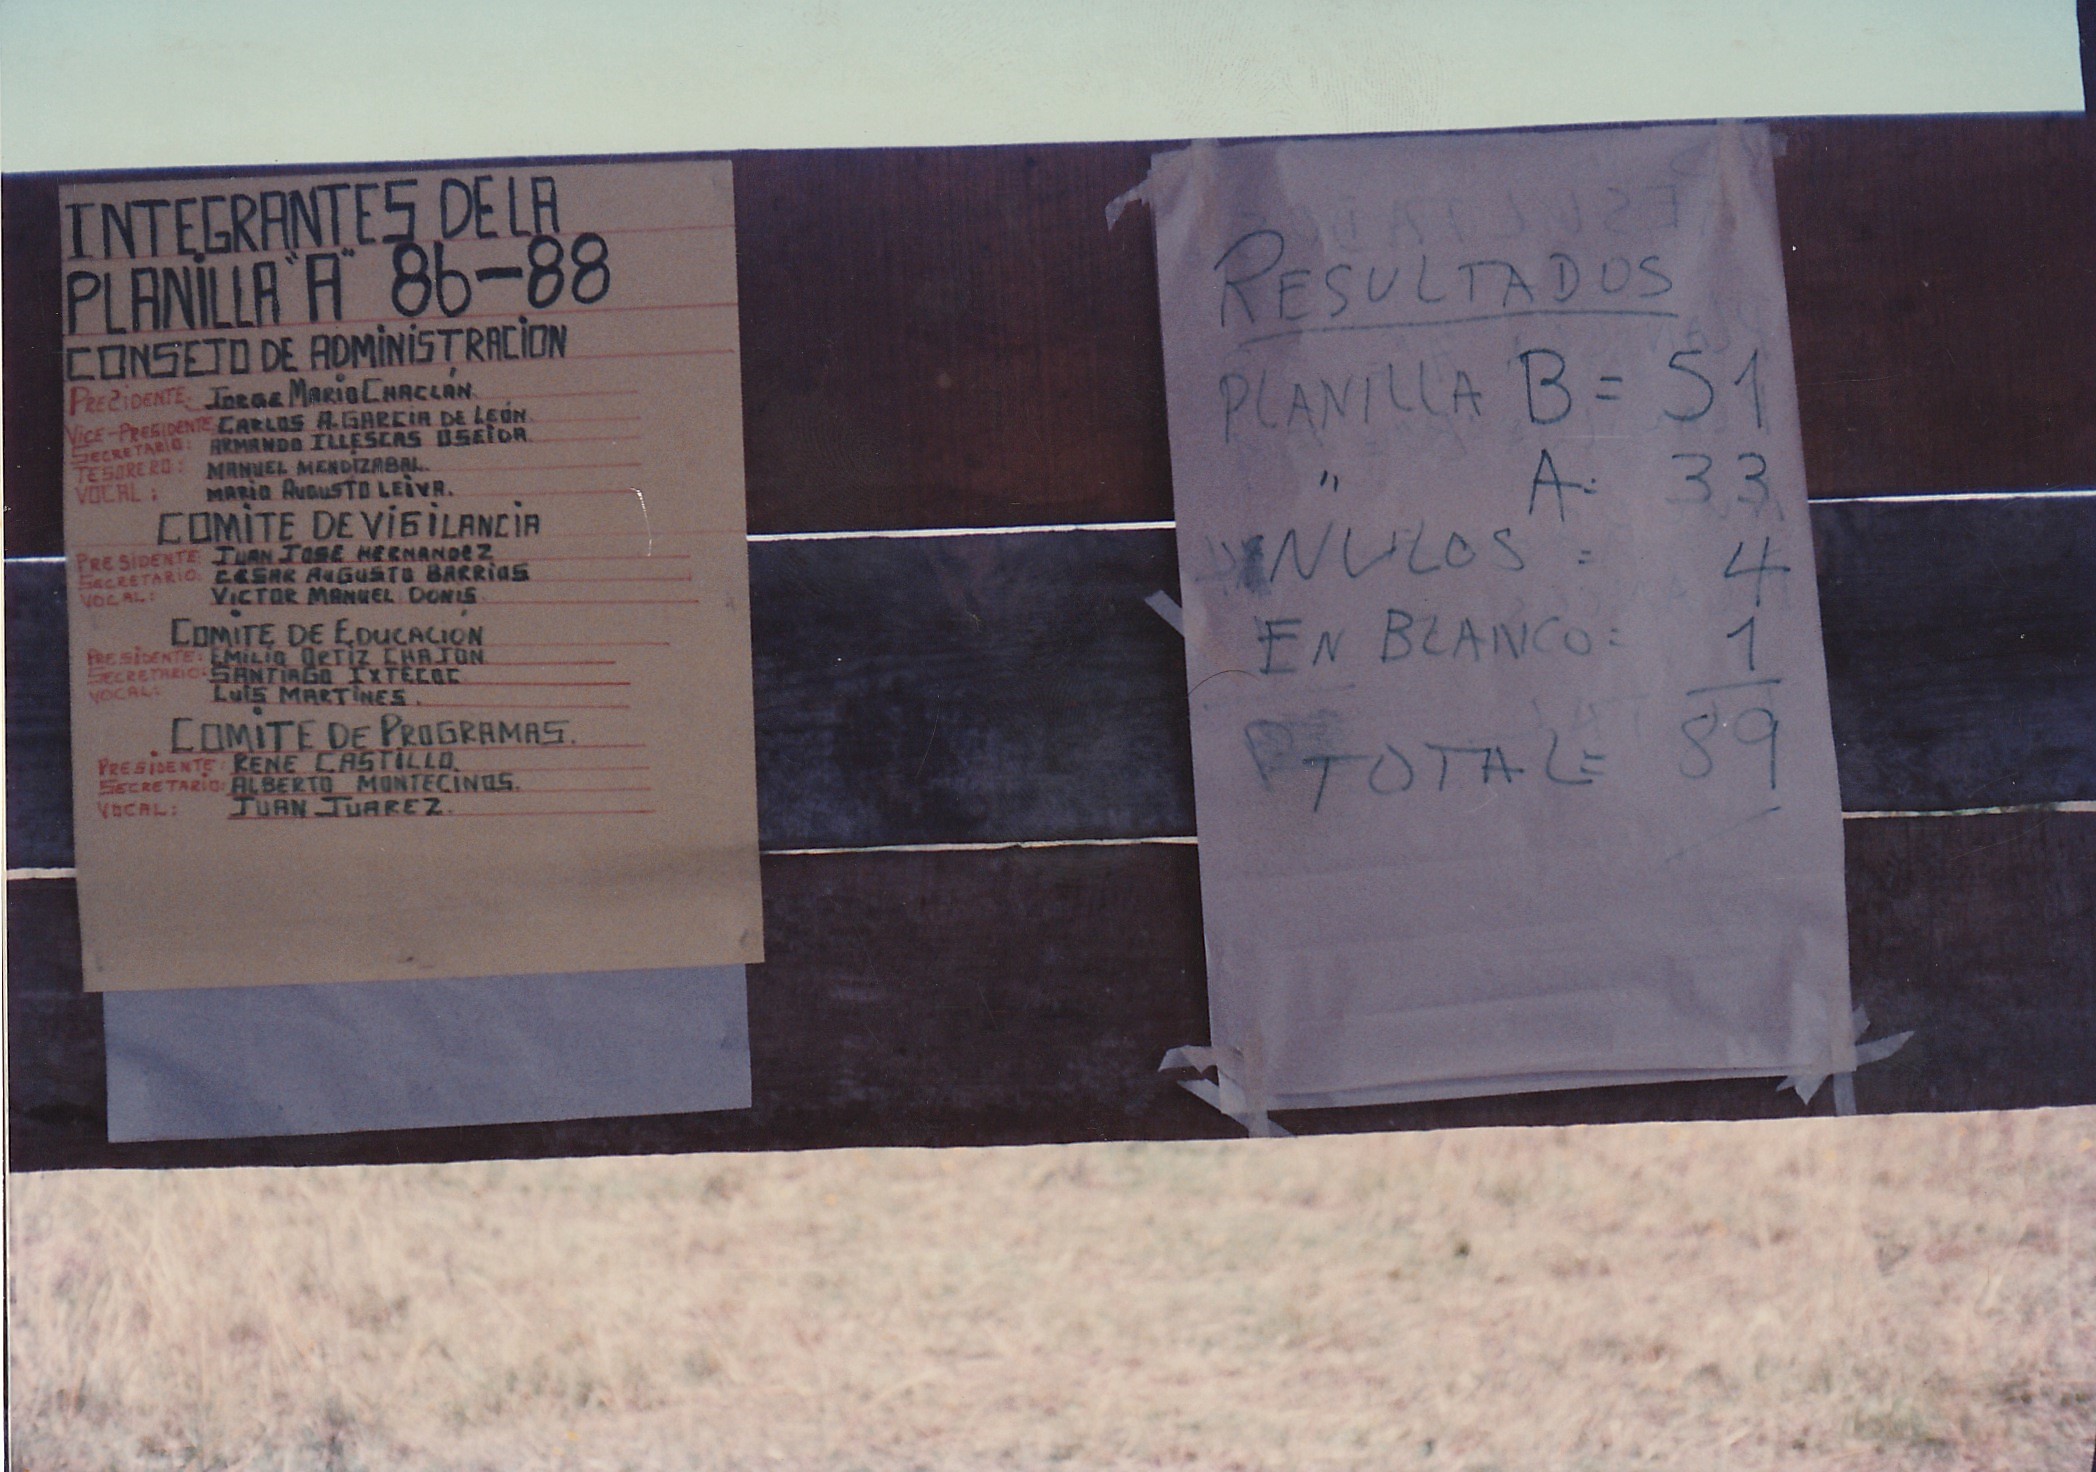 INTEGRANTES DE LA
PLANILLA "A" 86-88
CONSEJO DE ADMINISTRACION
PRECIDENTE: JORGE MARIO CHACLÁN.
VICE-PRESIDENTE CARLOS A. GARCIA DE LEÓN.
SECRETARIO: ARMANDO ILLESCAS OSEIDA
TESORERO: MANUEL MENDIZABAL.
VOCAL: MARIO AUGUSTO LEIVA.
COMITE DE VIGILANCIA
PRESIDENTE: JUAN JOSE HERNANDEZ
SECRETARIO: CESAR AUGUSTO BARRIOS
VOCAL: VICTOR MANUEL DONIS.
COMITE DE EDUCACIÓN
PRESIDENTE: EMILIO ORTIZ CHAJON
SECRETARIO: SANTIAGO IXTECOC
VOCAL: LUIS MARTINES.
COMITE DE PROGRAMAS.
PRESIDENTE: RENE CASTILLO.
SECRETARIO: ALBERTO MONTECINOS.
VOCAL: JUAN JUAREZ.
RESULTADOS
PLANILLA B = 51
" A: 33
NULOS = 4
EN BLANCO: 1
TOTAL = 89